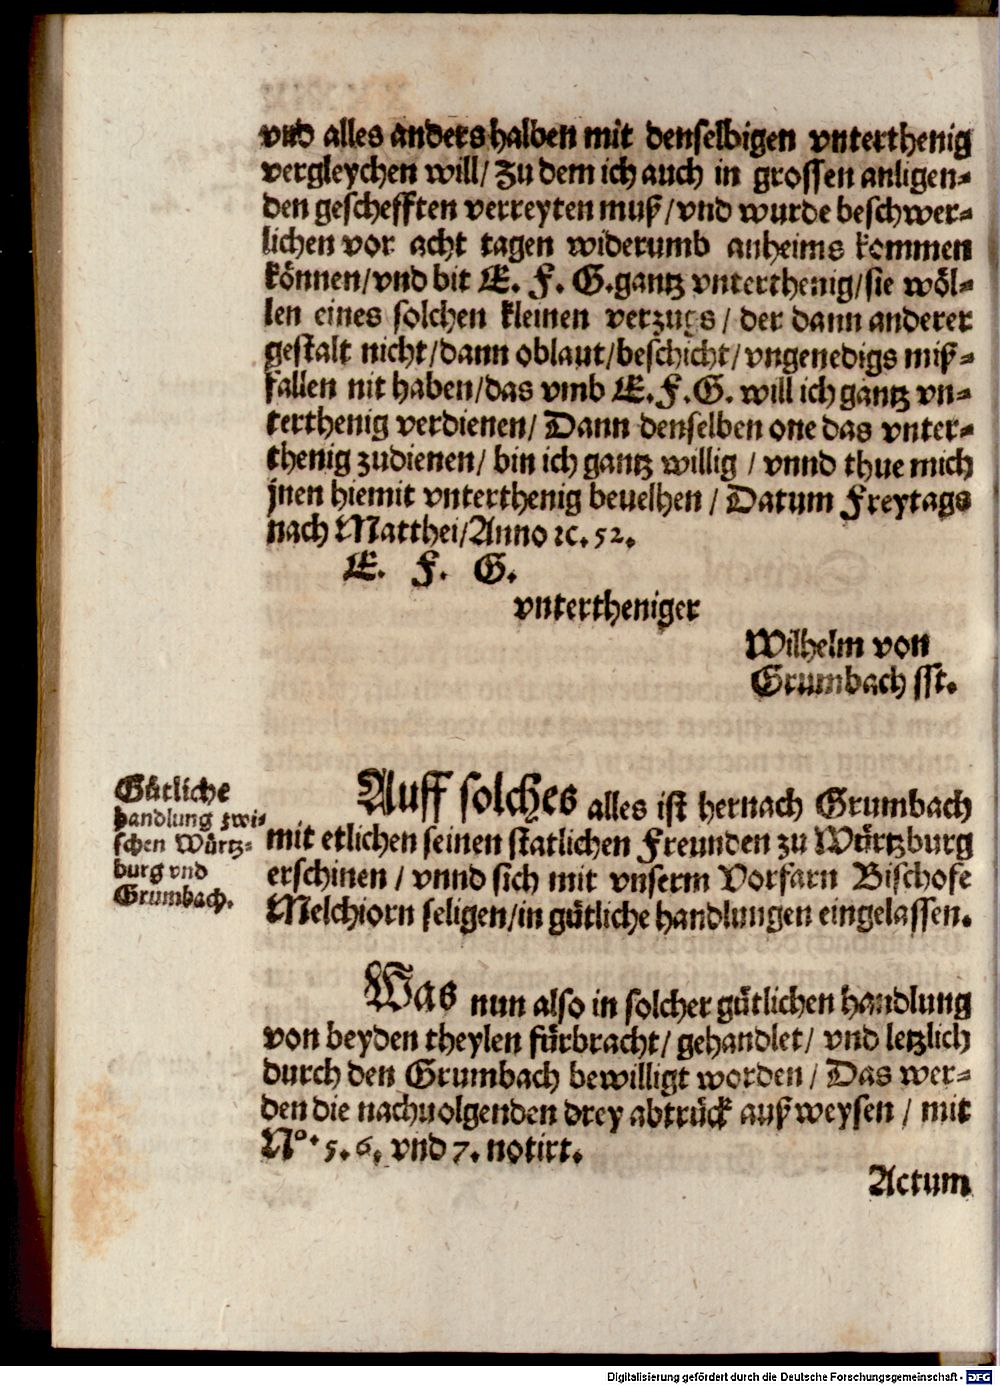 vnd alles andershalben mit denselbigen vnterthenig
vergleychen will/ Zu dem ich auch in grossen anligen⸗
den geschefften verreyten muß/ vnd wurde beschwer⸗
lichen vor acht tagen widerumb anheims kommen
können/vnd bit E. F. G. gantz vnterthenig/sie wöl⸗
len eines solchen kleinen verzugs/ der dann anderer
gestalt nicht/dann oblaut/beschicht/vngenedigs miß⸗
fallen nit haben/das vmb E. F. G. will ich gantz vn⸗
terthenig verdienen/ Dann denselben one das vnter⸗
thenig zudienen/ bin ich gantz willig / vnnd thue mich
jnen hiemit vnterthenig beuelhen / Datum Freytags
nach Matthei/Anno ꝛc. 52.
E. F. G.
vntertheniger
Wilhelm von
Grumbach sst.
Gütliche
handlung zwi⸗
schen Würtz⸗
burg vnd
Grumbach.
Auff solches alles ist hernach Grumbach
mit etlichen seinen statlichen Freunden zu Würtzburg
erschinen / vnnd sich mit vnserm Vorfarn Bischofe
Melchiorn seligen/in gütliche handlungen eingelassen.
Was nun also in solcher gütlichen handlung
von beyden theylen fürbracht/ gehandlet/ vnd letzlich
durch den Grumbach bewilligt worden / Das wer⸗
den die nachuolgenden drey abtrück außweysen / mit
No. 5. 6. vnd 7. notirt.
Actum
Digitalisierung gefördert durch die Deutsche Forschungsgemeinschaft - DFG